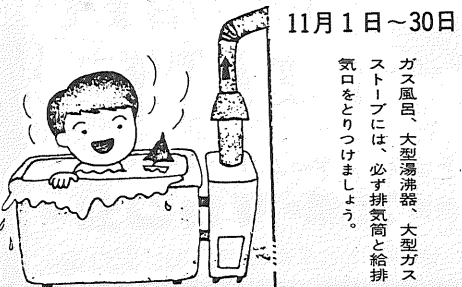 11月1日～30日
ガス風呂、大型湯沸器、大型ガス
ストーブには、必ず排気筒と給排
気口をとりつけましょう。